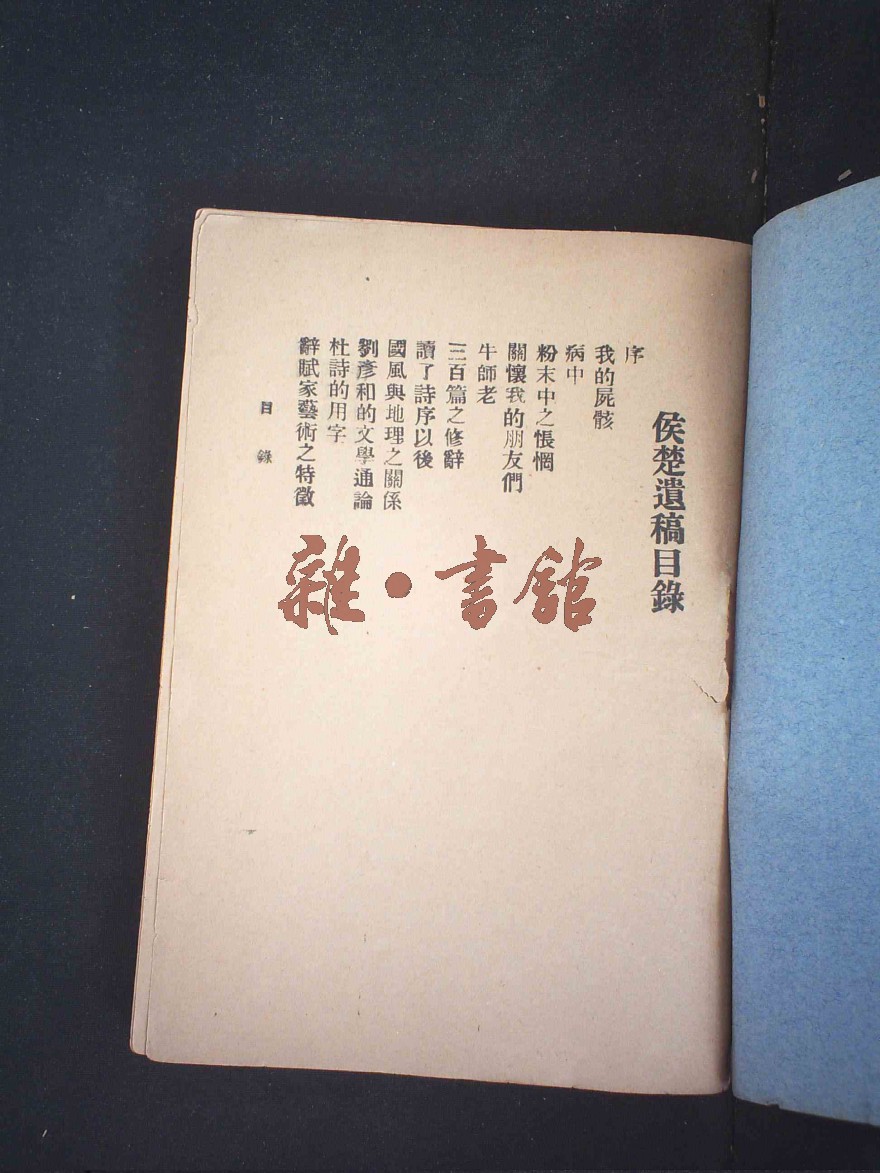 侯楚遺稿目錄
序
我的屍骸
病中
粉末中之悵惘
關懷我的朋友們
牛師老
三百篇之修辭
讀了詩序以後
國風與地理之關係
劉彥和的文學通論
杜詩的用字
辭賦家藝術之特徵
目錄
雜·書館